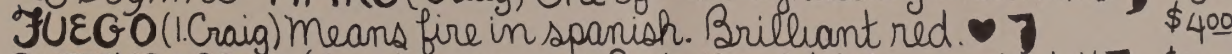 FUEGO (I. Craig) Means fire in spanish. Brilliant red. ♥ $4.00